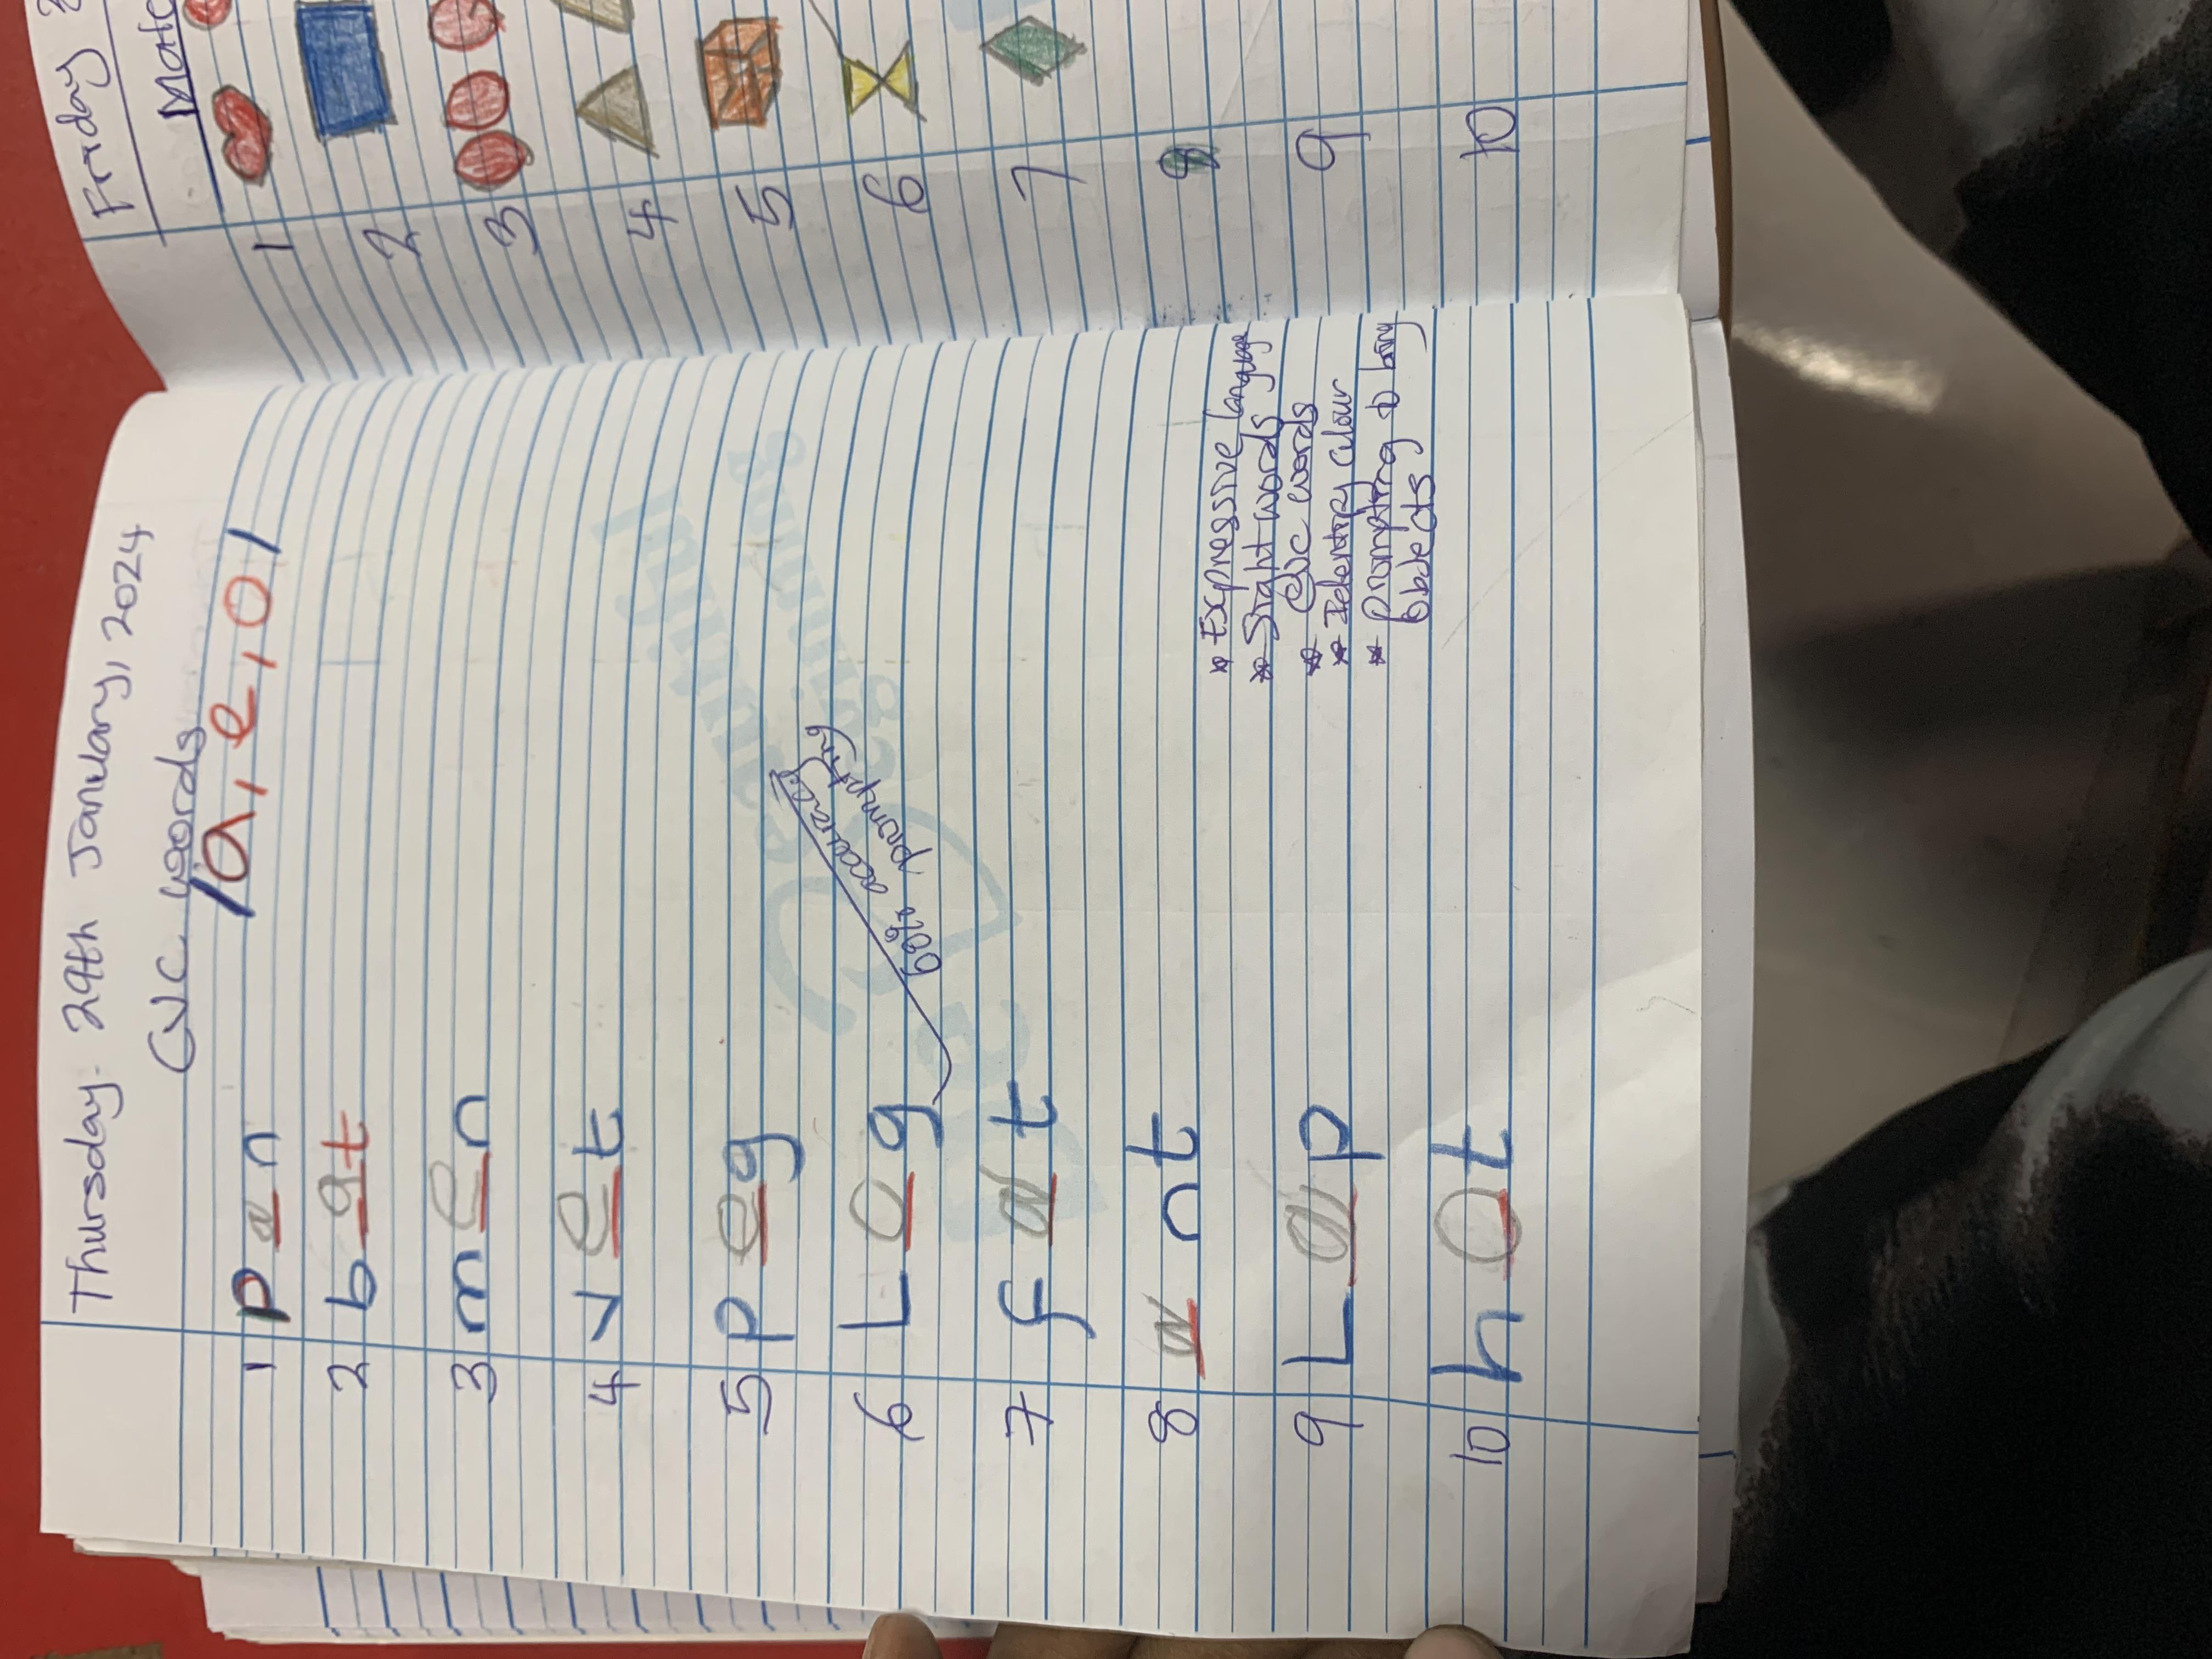 Thursday. 29th January, 2024
CVC words
/a, e, o/
1 pan
2 bat
3 men
4 vet
5 peg
6 Log
7 fat
8 ant
9 Lap
10 hot
accuracy
60% prompting
* Expressive language
* Sight words
* CVC words
* Identify colour
* prompting to bring
objects
Friday
1
2
3
4
5
6
7
8
9
10